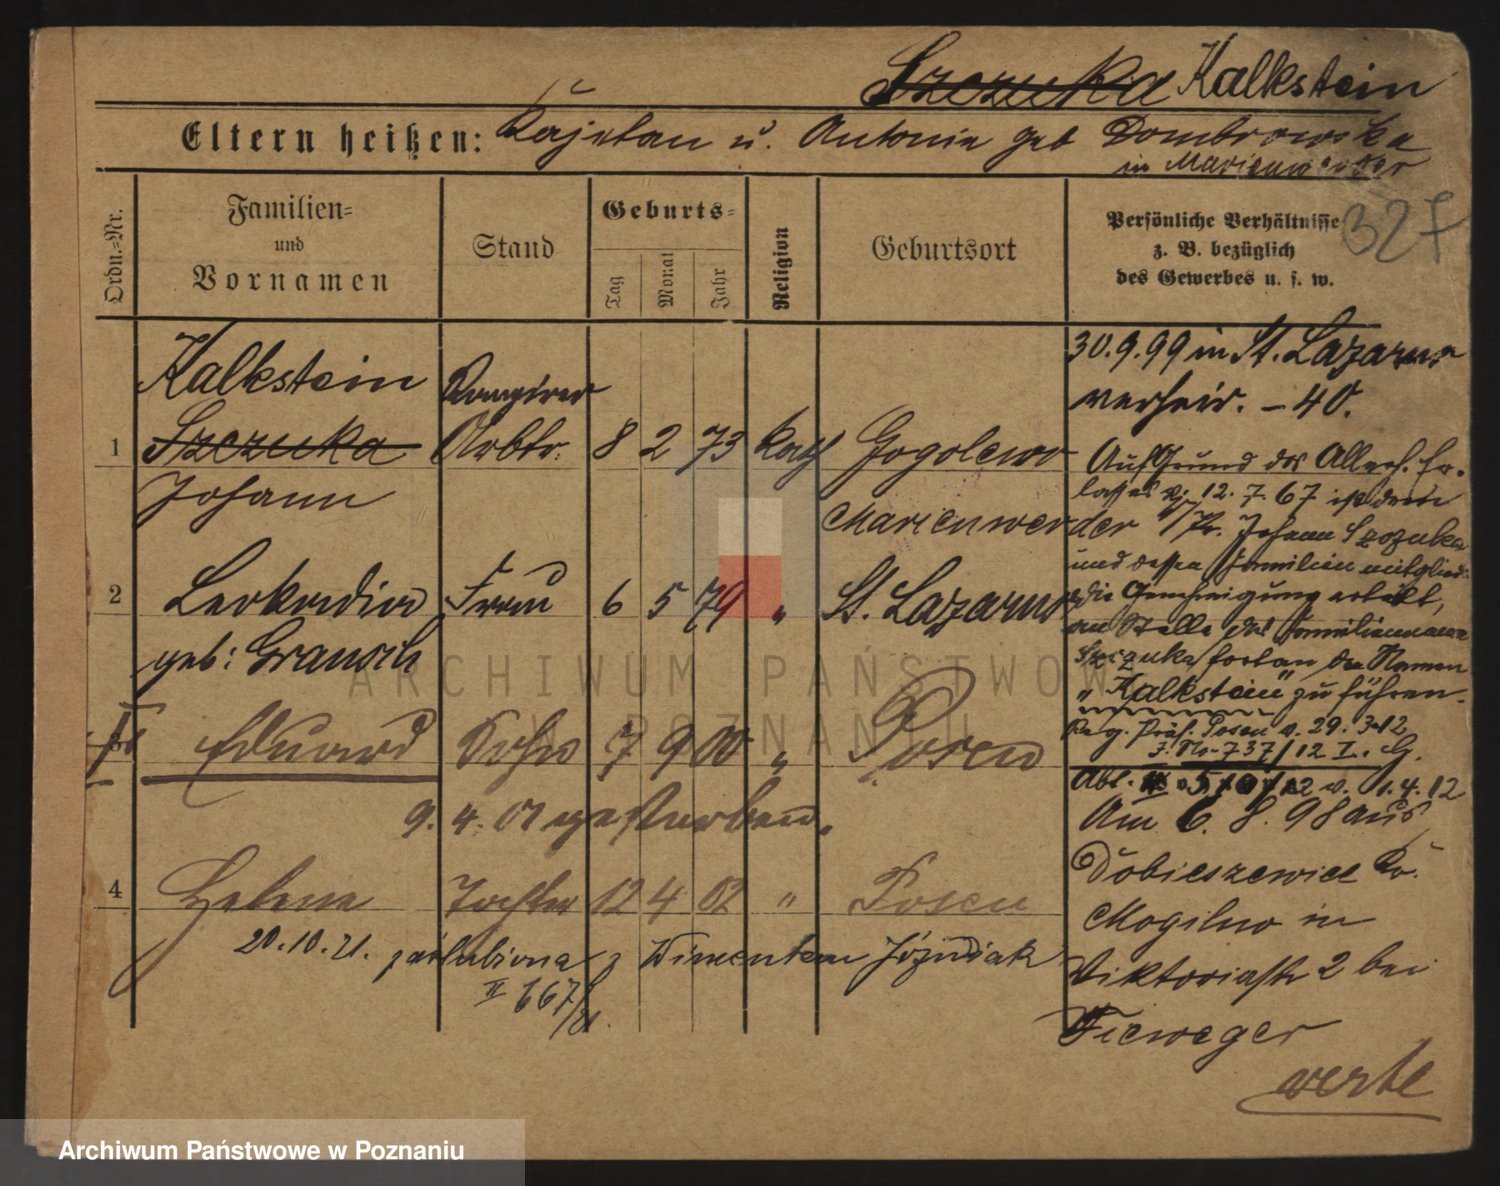 Szczuka Kalkstein
Eltern heißen: Kajetan u. Antonie geb Dombrowska
in Marienwerder
327
Ordn.=Nr.
Familien=
und
Vornamen
Stand
Geburts=
Tag
Monat
Jahr
Religion
Geburtsort
Persönliche Verhältnisse
z. B. bezüglich
des Gewerbes u. s. w.
Kalkstein
1 Szczuka
Johann
Rangirer
Arbtr. 8 2 73 kath Gogolewo
Marienwerder
2 Leokadia Frau 6 5 79 " St. Lazarus
geb: Grausch
Eduard Sohn 7 9 00 " Posen
9. 4. 01 gestorben.
4 Helene Tochter 12 4 02 " Posen
20.10.21. zaślubiona z Wincentem Jóźwiak
II 667/21.
30.9.99 in St. Lazarus
verheir. – 40.
Auf Grund des Allerh. Er-
lasses v. 12. 7. 67 ist dem
Johann Szczuka
und dessen Familienmitglied.
die Genehmigung erteilt,
an Stelle des Familiennamens
Szczuka fortan den Namen
"Kalkstein" zu führen.
Reg. Präs. Posen v. 29. 3. 12
J. No. 737/12 I. G.
v. 1. 4. 12
Am 6. 8. 98 aus
Dobieszewice Kr.
Mogilno in
Viktoriastr 2 bei
Vieweger
verte
ARCHIWUM PAŃSTWOWE
W POZNANIU
Archiwum Państwowe w Poznaniu